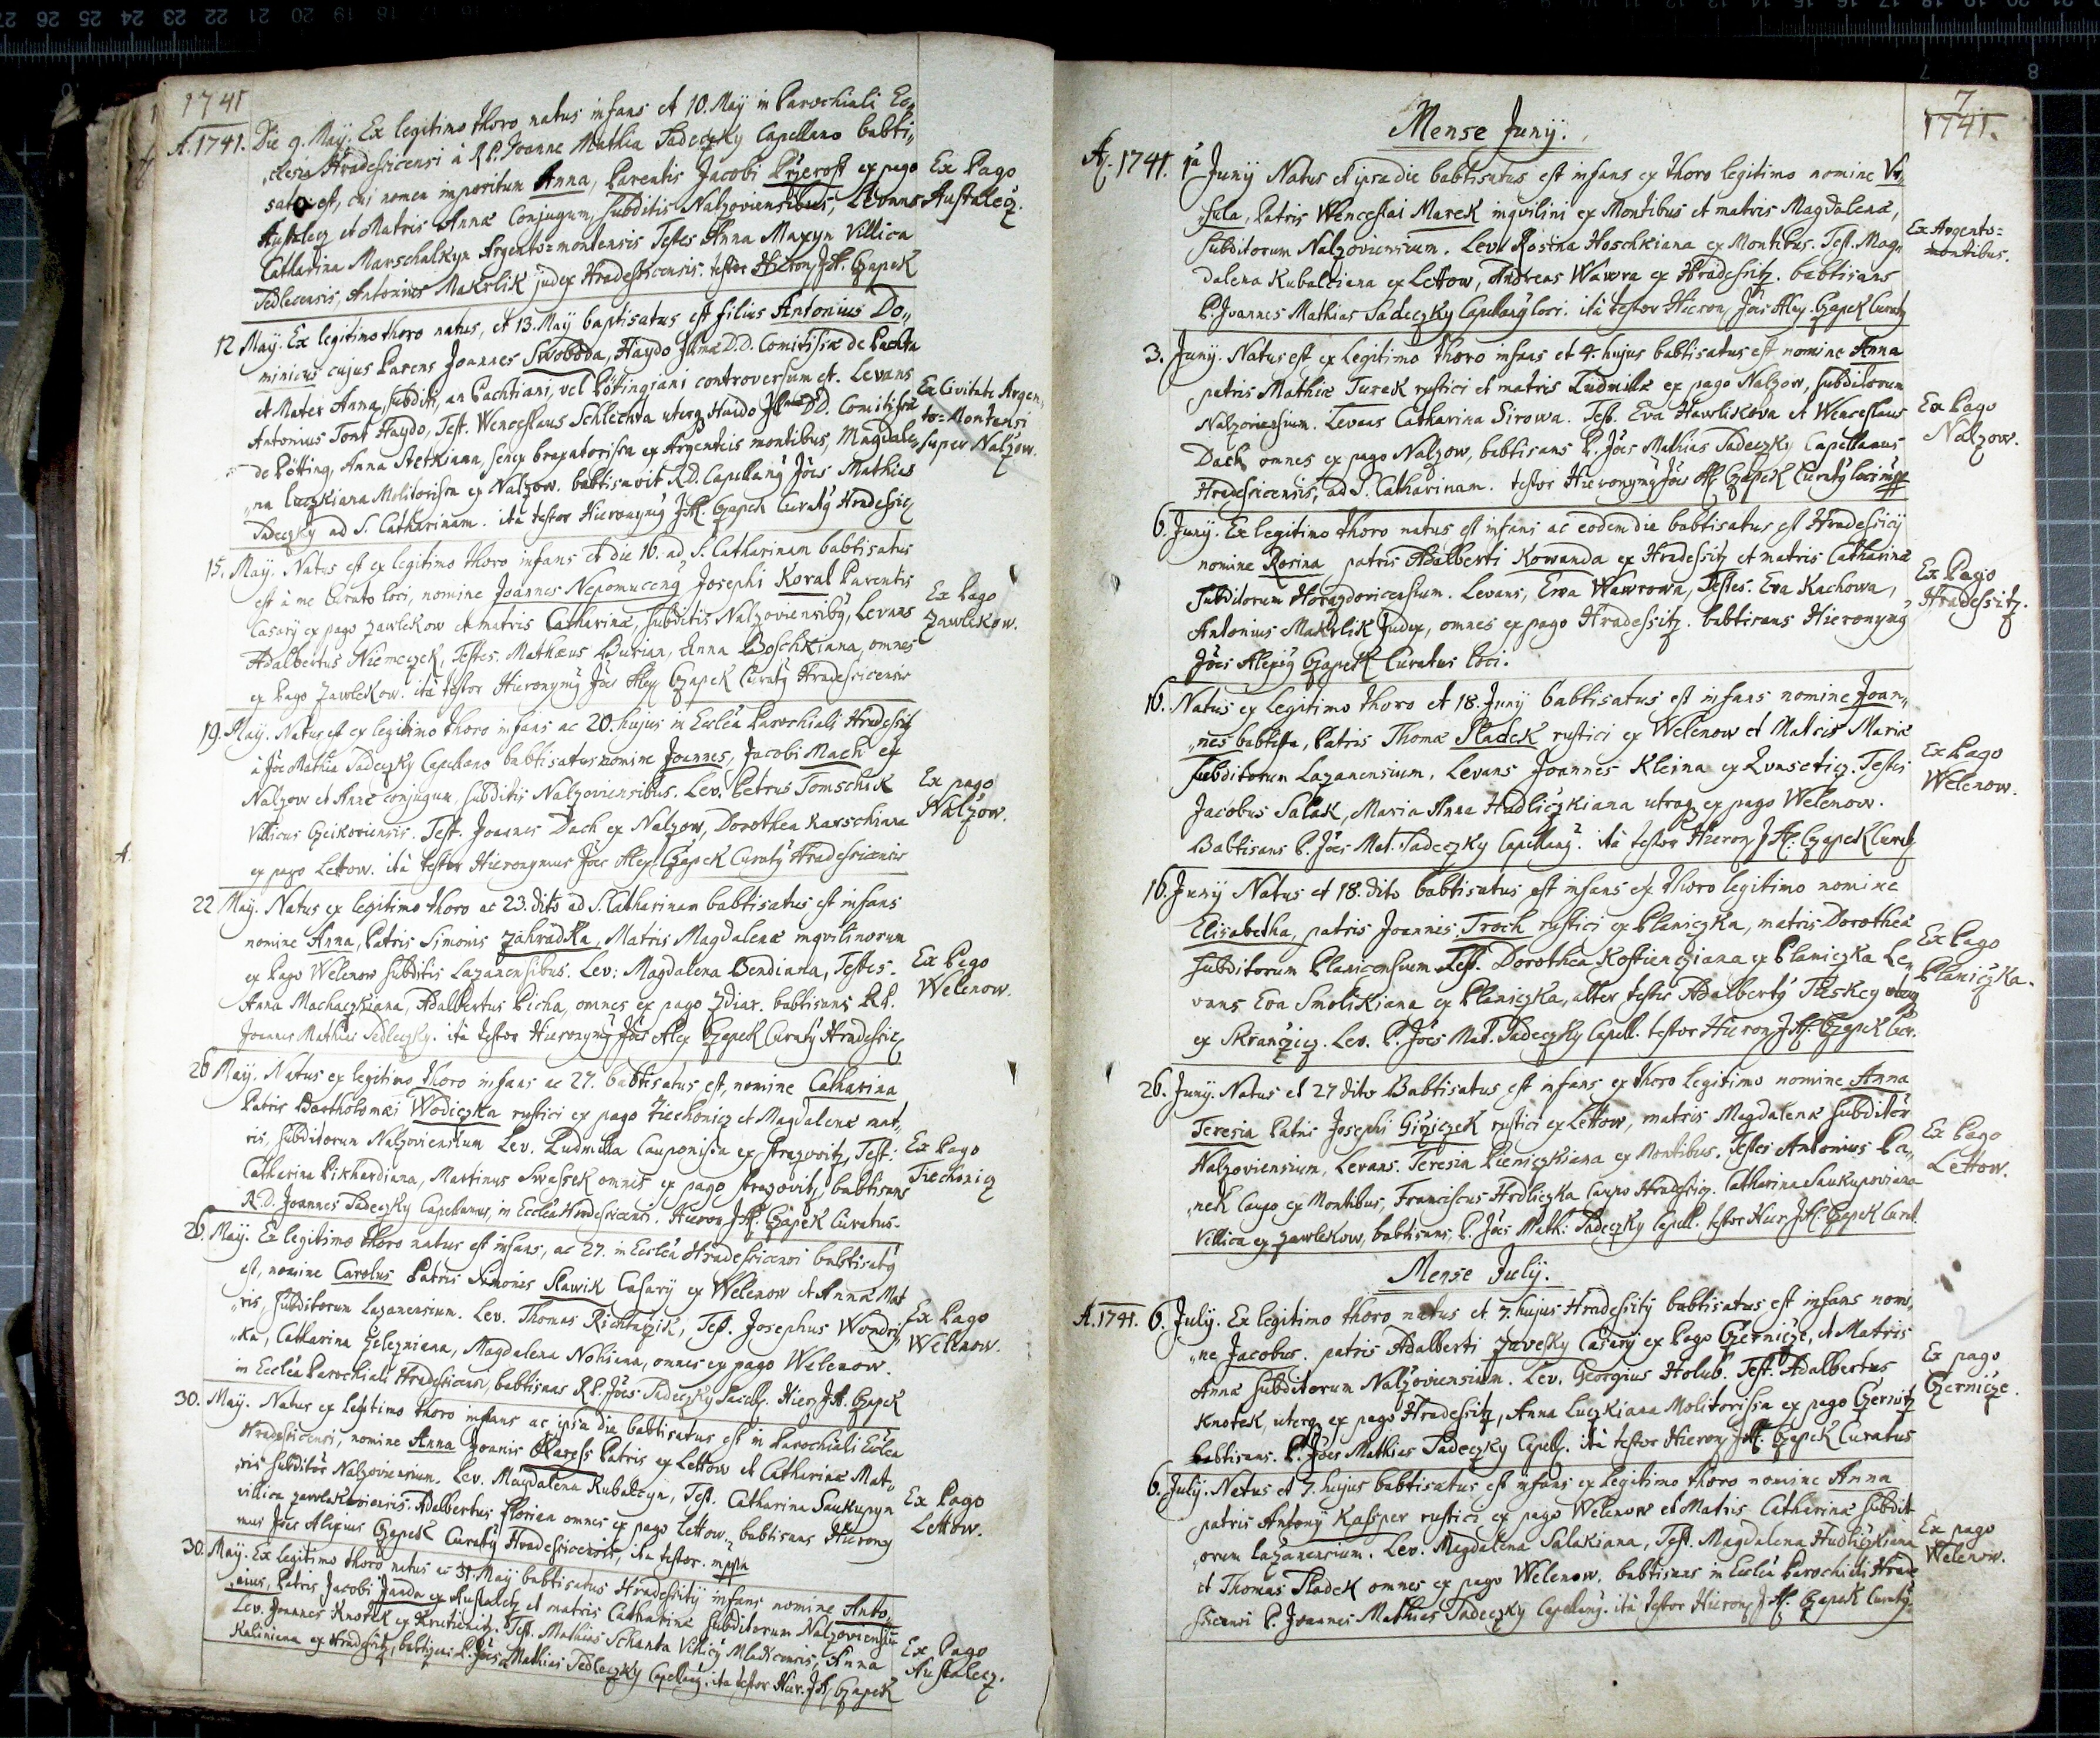 1741
A. 1741. Die 9. May. Ex legitimo thoro natus infans et 10. May in Parochiali Ec„
„clesia Hradessicensi à R.P. Joanne Mathia Sadeczky Capellano babti„
sata est, cui nomen impositum Anna, Parentis Jacobi Przerost ex pago
Austalecz et Matris Annæ Conjugum, subditis Nalzoviensibus, Levans
Catharina Marschalkyn Argento=montensis Testes Anna Maxyn Villica
Sedlecensis, Antonius Makrlik judex Hradessicensis. testor Hieron. J.A. Czapek
Ex Pago
Austalecz.
12 May. Ex legitimo thoro natus, et 13. May baptisatus est filius Antonius Do„
minicus cujus Parens Joannes Swoboda, Haydo Jllmæ D.D. Comitissæ de Pachta
et Mater Anna, subditi, an Pachtiani, vel Pöttingiani controversum et. Levans
Antonius Tont Haydo, Test. Wenceslaus Schlechta uterq Haido Jllmæ D.D. Comitissæ
de Pötting, Anna senex braxatorissa ex Argenteis montibus, Magdale„
„na Luczkiana Molitorissa ex Nalzow. babtisavit R.D. Capellanq Jöes Mathias
Sadeczky ad S. Catharinam. ità testor Hieronymq J.A. Czapek Curatq Hradessic
Ex Civitate Argen„
to=Montensi
super Nalzow.
15. May. Natus est ex legitimo thoro infans et die 16. ad S. Catharinam babtisatus
est à me Curato loci, nomine Joannes Nepomucenq Josephi Koral Parentis
Casarÿ ex pago Zawlekow et matris Catharinæ, subditis Nalzoviensibq, Levans
Adalbertus Niemeczek, Testes. Mathæus Burian, Anna Boschkiana, omnes
ex Pago Zawlekow. ità testor Hieronymq Jöes Alex Czapek Curatq Hradessicensis
Ex Pago
Zawlekow.
19. May. Natus est ex legitimo thoro infans ac 20. hujus in Ecclêa Parochiali Hradessic
à Jöe Mathia Sadeczky Capellano babtisatus nomine Joannes, Jacobi Mach ex
Nalzow et Annæ conjugum, subditis Nalzoviensibus. Lev. Petrus Tomschik
Villicus Czeikoviensis. Test. Joannes Dach ex Nalzow, Dorothea Karschiana
ex pago Lettow. ità testor Hieronymus Jöes Alex. Czapek Curatq Hradessicensis
Ex pago
Nalzow.
22 May. Natus ex legitimo thoro ac 23. dito ad S. Catharinam babtisatus est infans
nomine Anna, Patris Simonis Zahradka, Matris Magdalenæ inqvilinorum
ex Pago Welenow subditis Lazanensibus. Lev: Magdalena Bendiana, Testes.
Anna Machaczkiana, Adalbertus Picha, omnes ex pago Zdiar. babtisans R.P.
Joannes Mathias Sedleczky. ità testor Hieronymq Jöes Alex Czapek Curatq Hradessic
Ex Pago
Welenow.
26 May. Natus ex legitimo thoro infans ac 27. babtisatus est, nomine Catharina
Patris Bartholomæi Wodiczka rustici ex pago Tiechonicz et Magdalenæ mat„
ris, subditorum Nalzoviensium Lev. Ludmilla Cauponissa ex Strazovitz, Test:
Catharina Pikhardiana, Martinus Swassek omnes ex pago Strazovitz, babtisans
R.D. Joannes Sadeczky Capellanus, in Ecclêa Hradessicensi. Hieron. J.A. Czapek Curatus.
Ex Pago
Tiechonicz
26. May. Ex legitimo thoro natus est infans, ac 27. in Ecclêa Hradessicensi babtisatq
est, nomine Carolus Patris Simonis Slawik Casarÿ ex Welenow et Annæ Mat
„ris, subditorum Lazanensium. Lev. Thomas Richtarzik, Test. Josephus Wondri„
„ka, Catharina Zelezniana, Magdalena Nohiana, omnes ex pago Welenow.
in Ecclêa Parochiali Hradessicensi, babtisans R.P. Jöes Sadeczky Capell. Hier. J.A. Czapek
Ex Pago
Welenow.
30. May. Natus ex legitimo thoro infans ac ipsa die babtisatus est in Parochiali Ecclêa
Hradessicensi, nomine Anna Joannis Karess Patris ex Lettow et Catharinæ Mat„
„ris subditor Nalzoviensium. Lev. Magdalena Kubalcyn, Test. Catharina Saukupyn
villica Zawlekoviensis. Adalbertus Florian omnes ex pago Lettow. babtisans Hierony
mus Jöes Alexius Czapek Curatq Hradessicensis, ita testor.
Ex Pago
Lettow.
30. May. Ex legitimo thoro natus ac 31. May babtisatus Hradessitÿ infans nomine Anto„
„nius, Patris Jacobi Janda ex Austalecz et matris Catharinæ subditorum Nalzoviensiu
Lev. Joannes Knotek ex Krutienitz. Test. Mathias Schanta Villicq Mladicensis, Anna
Kaliniana ex Hradessitz, babtizans R.P. Jöes Mathias Sedleczky Capellanq. ita testor Hier. J.A. Czapek
Ex Pago
Austalecz.
7
1741.
Mense Junÿ.
A. 1741. 1a Junÿ Natus et ipsa die babtisatus est infans ex thoro legitimo nomine Vr„
„sula, Patris Wenceslai Marek inqvilini ex Montibus et matris Magdalenæ,
subditorum Nalzoviensium. Lev. Rosina Hoschkiana ex Montibus. Test. Mag„
dalena Kubalciana ex Lettow, Andreas Wawra ex Hradessitz. babtisans
P. Joannes Mathias Sadeczky Capellanq loci. ità testor Hieron. Jöes Alex. Czapek Curatq
Ex Argento=
montibus.
3. Junÿ. Natus est ex legitimo thoro infans et 4. hujus babtisatus est nomine Anna
patris Mathiæ Turek rustici et matris Ludmilæ ex pago Nalzow, subditorum
Nalzoviensium. Levans Catharina Sirowa. Test. Eva Hawlikova et Wenceslaus
Dach omnes ex pago Nalzow, babtisans P. Jöes Mathias Sadeczky Capellanus
Hradessicensis, ad S. Catharinam. testor Hieronymq Jöes A. Czapek Curatq loci mpp
Ex Pago
Nalzow.
6. Junÿ. Ex legitimo thoro natus est infans ac eodem die babtisatus est Hradessicÿ
nomine Rosina patris Adalberti Kowanda ex Hradessitz et matris Catharinæ
Subditorum Horazdovicensium. Levans, Ewa Wawrowa, Testes. Eva Kachowa,
Antonius Makrlik Judex, omnes ex pago Hradessitz. babtisans Hieronymq
Jöes Alexiq Czapek Curatus loci.
Ex Pago
Hradessitz.
16. Natus ex legitimo thoro et 18. Junÿ babtisatus est infans nomine Joan„
„nes babtista, Patris Thomæ Sladek rustici ex Welenow et Matris Mariæ
subditorum Lazanensium, Levans Joannes Kleina ex Kvaseticz. Testes
Jacobus Salak, Maria Anna Hudliczkiana utraq ex pago Welenow.
Babtisans P. Jöes Mat. Sadeczky Capellanq. ità testor Hieron J.A. Czapek Curatq
Ex Pago
Welenow.
16. Junÿ Natus et 18. dito babtisatus est infans ex thoro legitimo nomine
Elisabetha, patris Joannes Troch rustici ex Planiczka, matris Dorotheæ
subditorum Planicensium Test. Dorothea Kostiencziana ex Planiczka Le„
vans Eva Smolikiana ex Planiczka, alter testis Adalbertq
ex Skranczicz. Lev. P. Jöes Mat. Sadeczky Capell. testor Hieron J.A. Czapek Cur.
Ex Pago
Planiczka.
26. Junÿ. Natus et 27 dito Babtisatus est infans ex thoro legitimo nomine Anna
Teresia Patris Josephi Girziczek rustici ex Lettow, matris Magdalenæ subditor
Nalzoviensium, Levans. Teresia Pieniczkiana ex Montibus. Testes Antonius Pa„
„nek Caupo ex Montibus, Franciscus Hrdliczka Caupo Hradessic. Catharina Saukupoviana
Villica ex Zawlekow, babtisans, P. Jöes Math: Sadeczky Capell. testor Hier. J.A. Czapek Curat.
Ex Pago
Lettow.
Mense Julÿ.
A. 1741. 6. Julÿ. Ex legitimo thoro natus et 7. hujus Hradessitÿ babtisatus est infans nomi„
„ne Jacobus. patris Adalberti Zavesky Casarÿ ex Pago Czernicze, et Matris
Annæ subditorum Nalzoviensium. Lev. Georgius Holub. Test. Adalbertus
Knotek, uterq ex pago Hradessitz, Anna Luczkiana Molitorissa ex pago Czernitz
babtisans. P. Jöes Mathias Sadeczky Capell. ità testor Hieron J.A. Czapek Curatus
Ex pago
Czernicze.
6. Julÿ. Natus et 7. hujus babtisatus est infans ex legitimo thoro nomine Anna
patris Antonÿ Kassper rustici ex pago Welenow et Matris Catharinæ subdit
„orum Lazanensium. Lev. Magdalena Salakiana, Test. Magdalena Hudliczkiana
et Thomas Sladek omnes ex pago Welenow. babtisans in Ecclêa Parochiali Hrade
ssicensi P. Joannes Mathias Sadeczky Capellanq. ità testor Hieron J.A. Czapek Curatq.
Ex pago
Welenow.